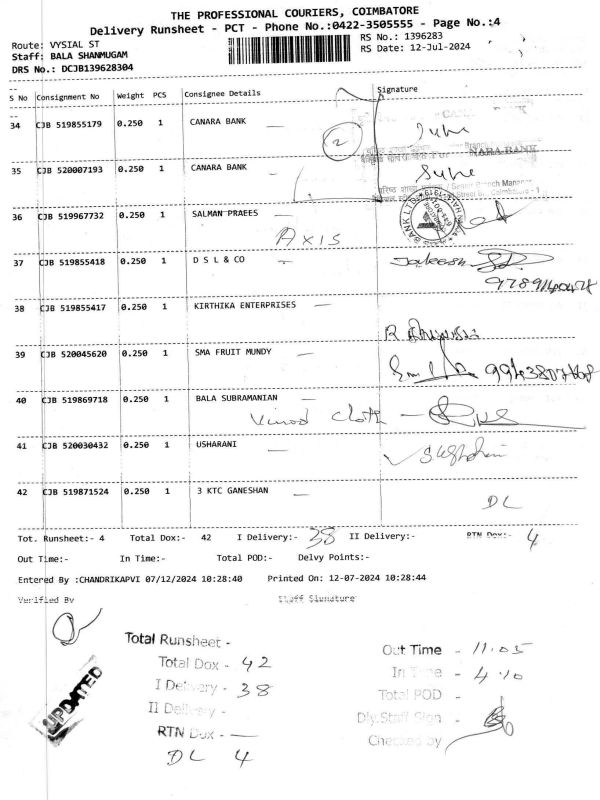 THE PROFESSIONAL COURIERS, COIMBATORE
Delivery Runsheet - PCT - Phone No.:0422-3505555 - Page No.:4
Route: VYSIAL ST
RS No.: 1396283
Staff: BALA SHANMUGAM
RS Date: 12-Jul-2024
DRS No.: DCJB139628304
S No Consignment No Weight PCS Consignee Details Signature
34 CJB 519855179 0.250 1 CANARA BANK
2
35 CJB 520007193 0.250 1 CANARA BANK
NARA BANK
Senior Branch Manager
36 CJB 519967732 0.250 1 SALMAN PRAEES
AXIS
37 CJB 519855418 0.250 1 D S L & CO
38 CJB 519855417 0.250 1 KIRTHIKA ENTERPRISES
39 CJB 520045620 0.250 1 SMA FRUIT MUNDY
40 CJB 519869718 0.250 1 BALA SUBRAMANIAN
Vinod cloth
41 CJB 520030432 0.250 1 USHARANI
42 CJB 519871524 0.250 1 3 KTC GANESHAN
DL
Tot. Runsheet:- 4 Total Dox:- 42 I Delivery:- 38 II Delivery:- RTN Dox:- 4
Out Time:- In Time:- Total POD:- Delvy Points:-
Entered By :CHANDRIKAPVI 07/12/2024 10:28:40 Printed On: 12-07-2024 10:28:44
Verified By Staff Signature
Total Runsheet -
Out Time - 11.05
Total Dox - 42
In Time - 4.10
I Delivery - 38
Total POD -
II Delivery -
Dly.Staff Sign. -
UPDATED
RTN Dox -
Checked by
DL 4